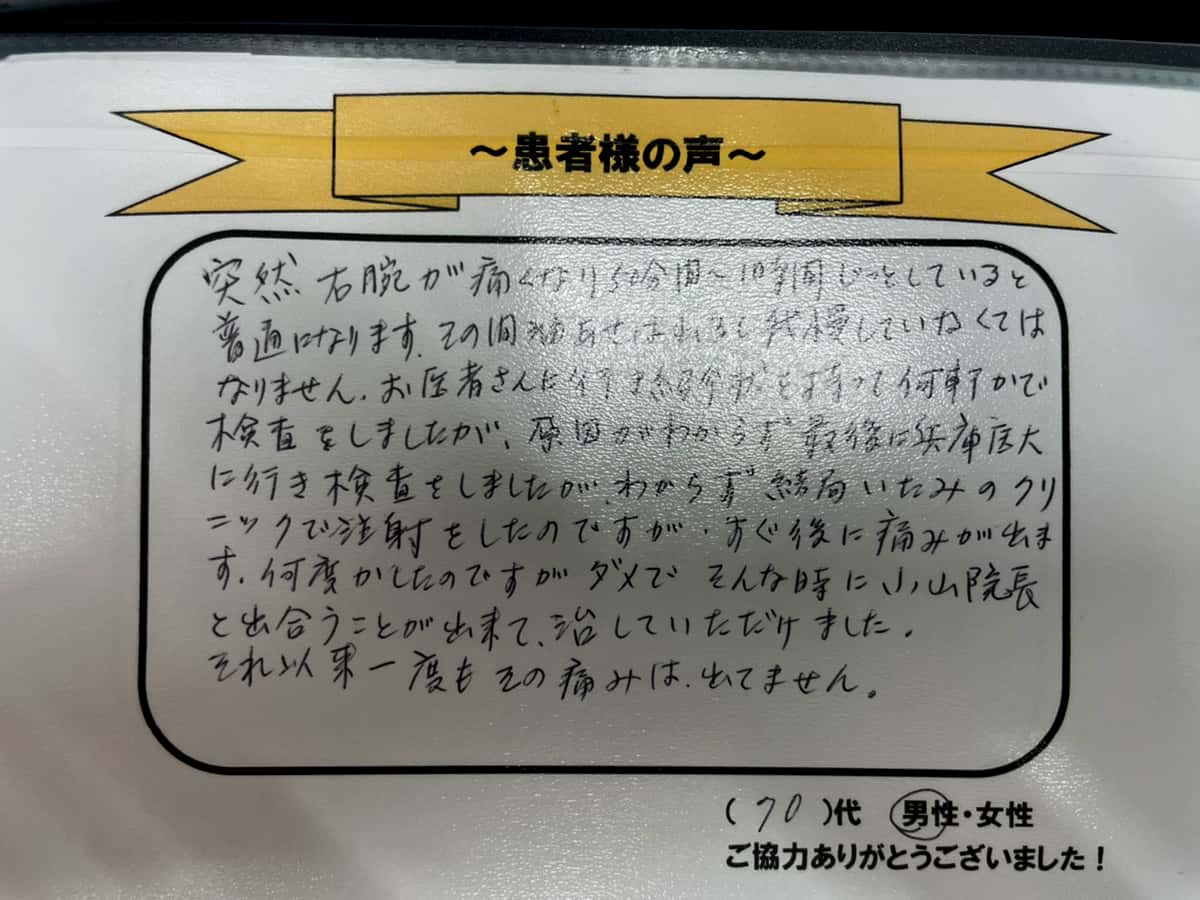 ～患者様の声～
突然右腕が痛くなり50分間～1時間じっとしていると
普通になります。その間油あせはながし我慢していなくては
なりません。お医者さんに行き紹介状を持って何軒かで
検査をしましたが、原因がわからず最後に兵庫医大
に行き検査をしましたが、わからず結局いたみのクリ
ニックで注射をしたのですが、すぐ後に痛みが出ま
す。何度かしたのですがダメでそんな時に小山院長
と出合うことが出来て、治していただけました。
それ以来一度もその痛みは、出てません。
(70)代 男性・女性
ご協力ありがとうございました！